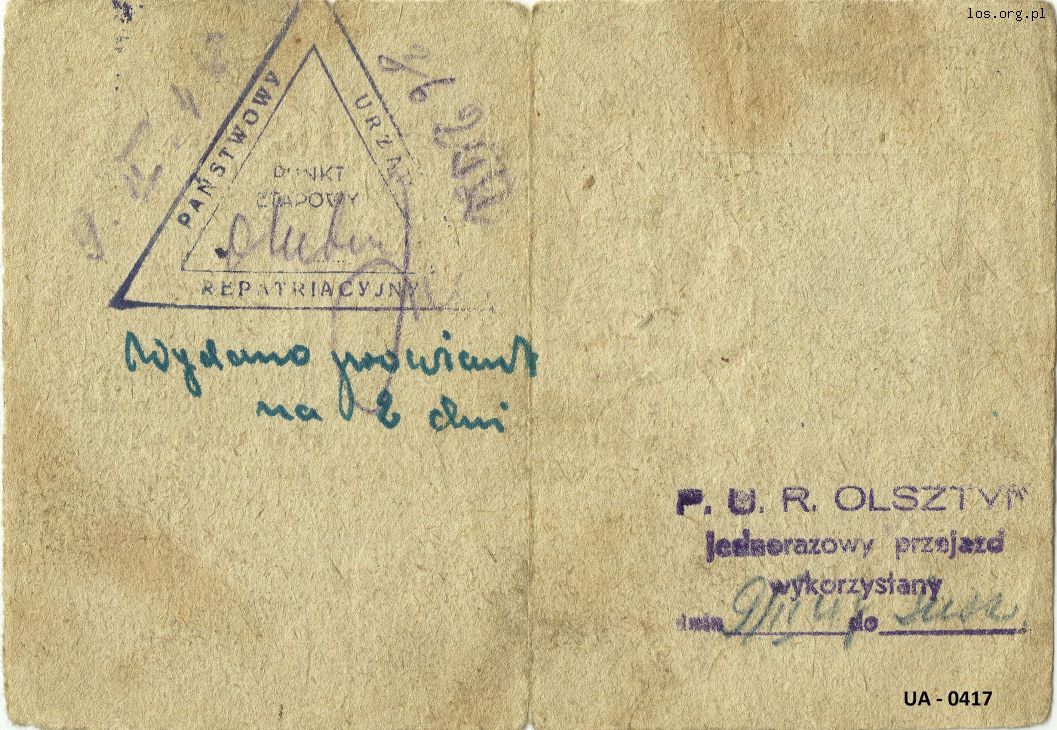 los.org.pl
PAŃSTWOWY URZĄ
PUNKT
ETAPOWY
REPATRIACYJNY
Wydano prowiant
na 2 dni
P. U. R. OLSZTYN
jednorazowy przejazd
wykorzystany
dnia do
UA - 0417